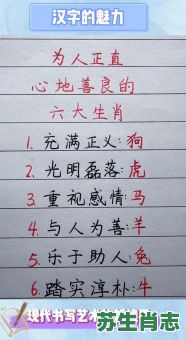 汉字的魅力
为人正直
心地善良的
六大生肖
1.充满正义:狗
2.光明磊落:虎
3.重视感情:马
4.与人为善:羊
5.乐于助人:兔
6.踏实淳朴:牛
现代书写艺术
苏生肖志